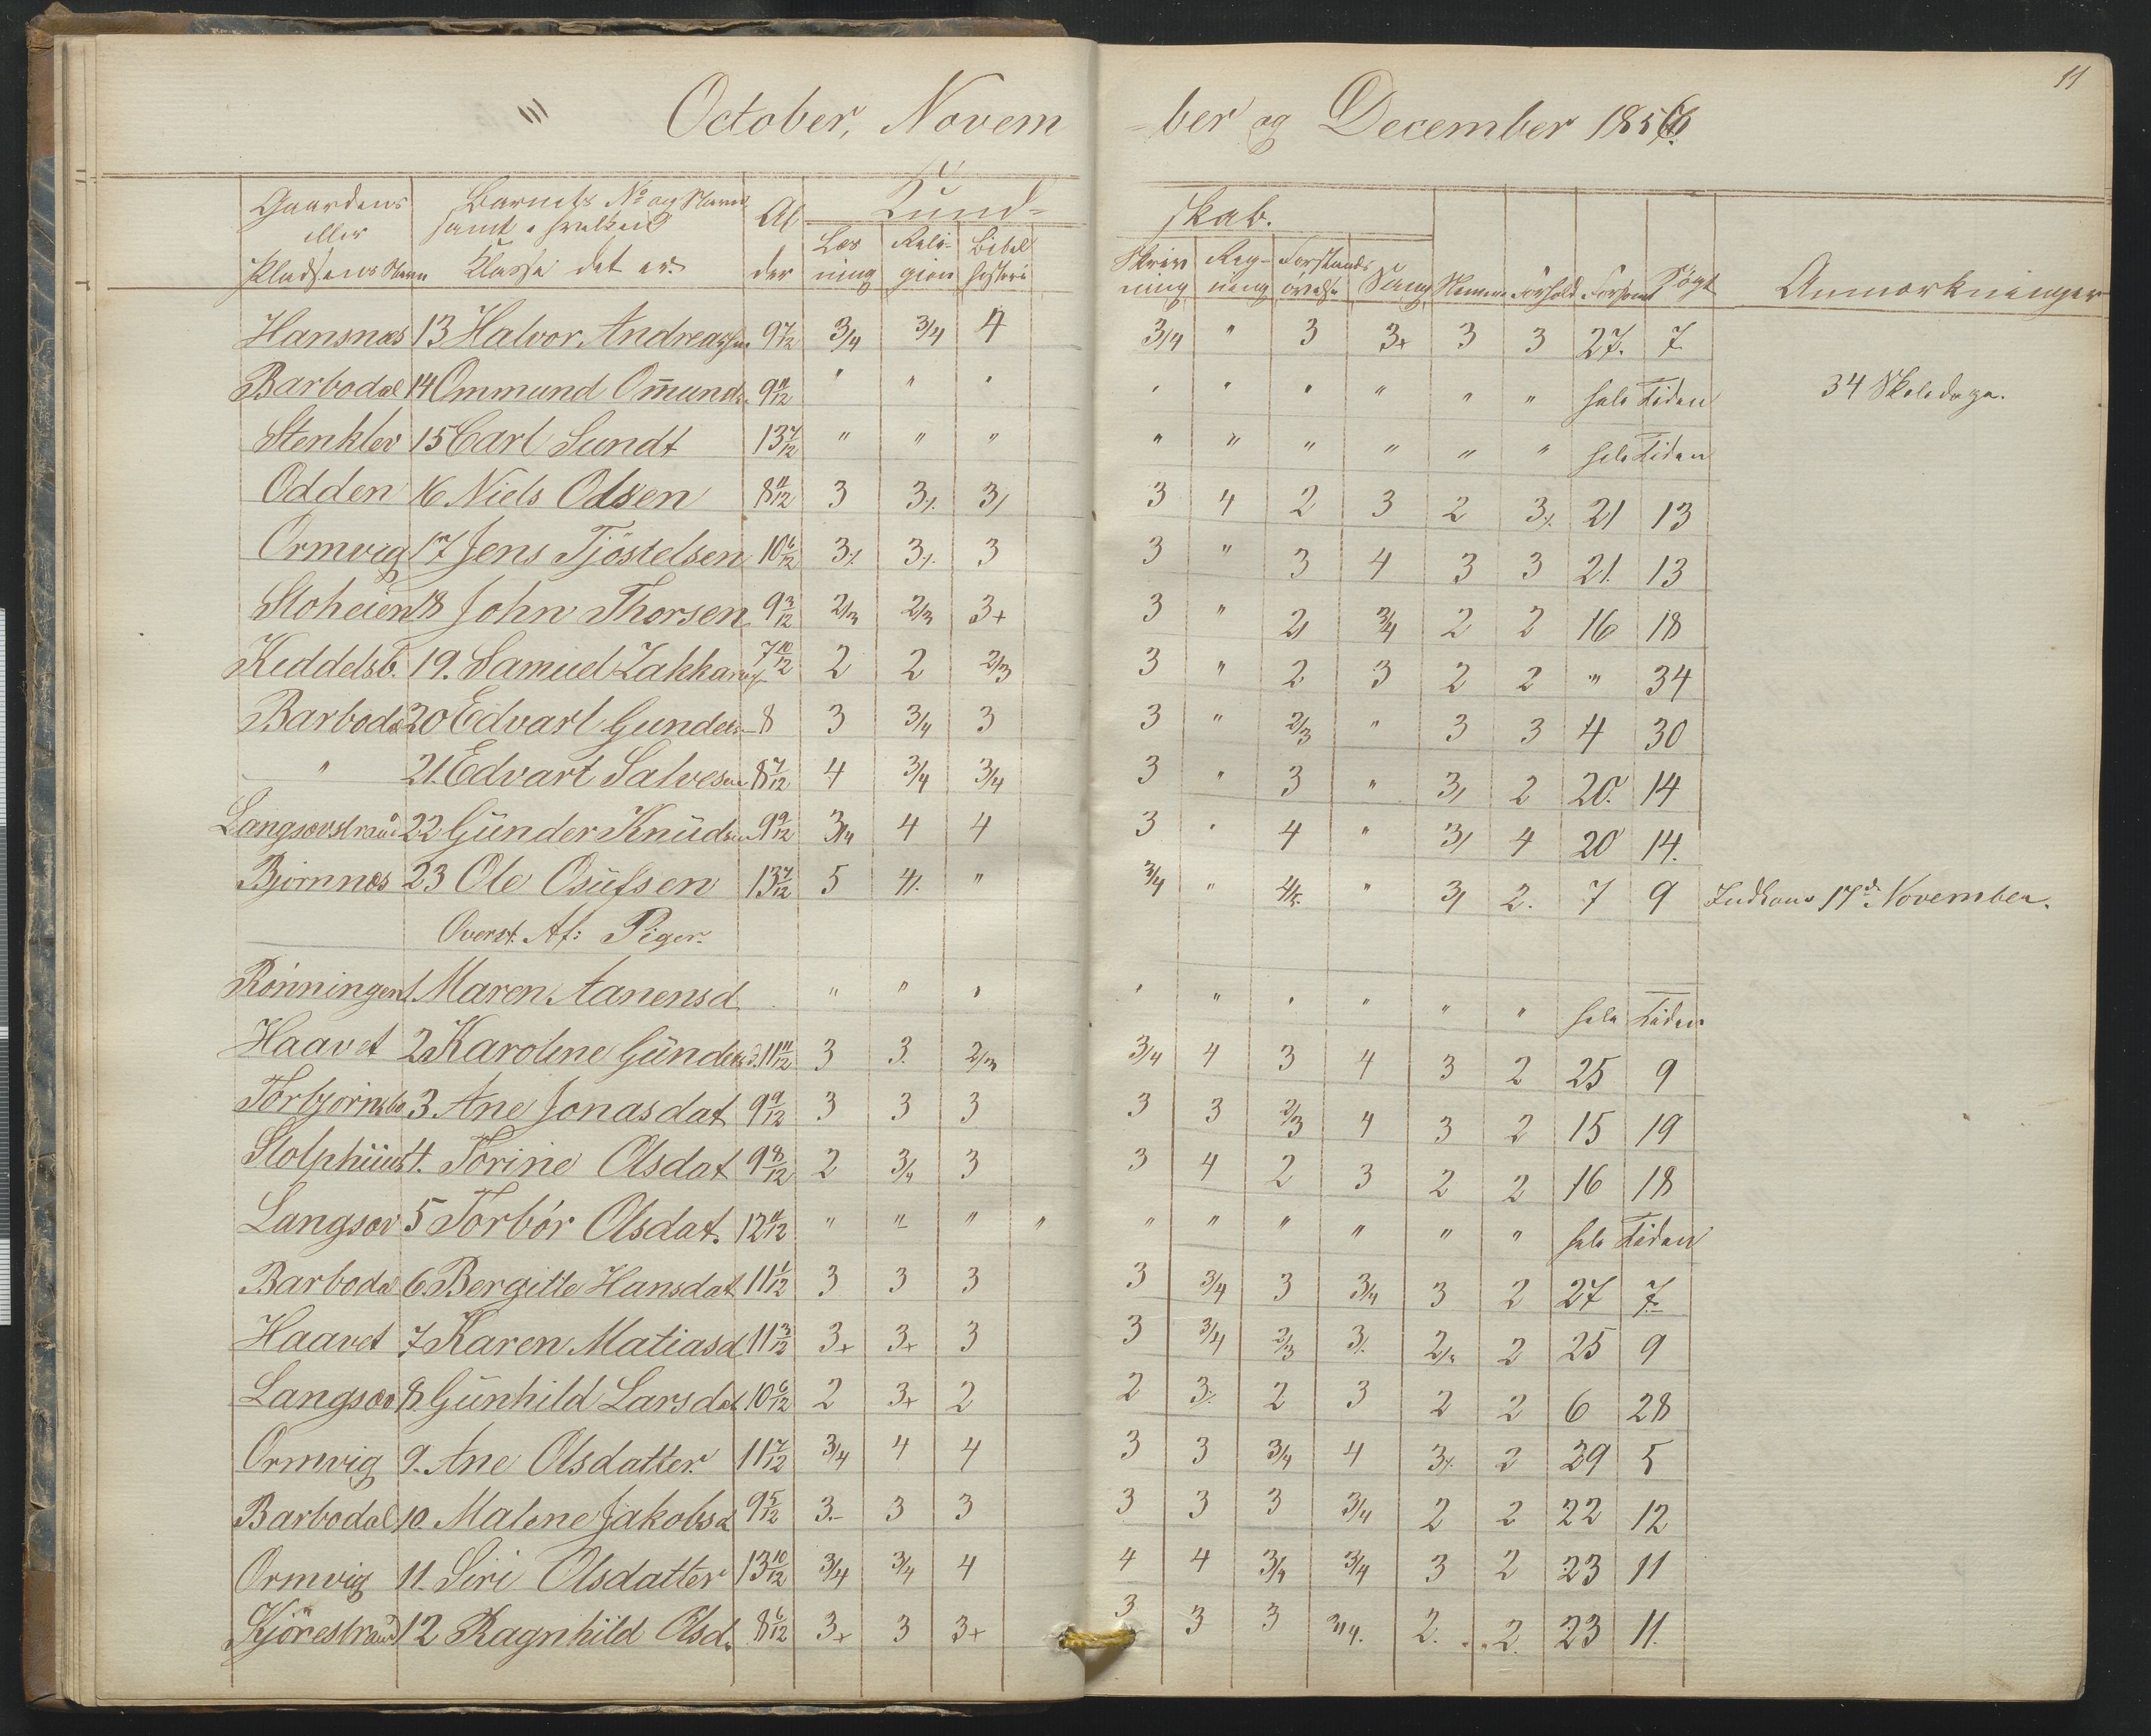 11
October, November og December 1856.
Gaardens eller Pladsens Navn Barnets No og Navn samt i hvilken Klasse det er. Alder Kundskab. Læsning Religion Bibelhistorie Skrivning Regning Forstandsøvelse Sang Nemme Forhold Forsømt Søgt Anmærkninger
Hansnæs 13 Halvor Andreassen 9 7/12 3/4 3/4 4 3/4 " 3 3+ 3 3 27. 7.
Barbodal 14 Ommund Om̄unds. 9 11/12 " " " " " " " " " hele Tiden 34 Skoledage.
Stenklev 15 Carl Sundt 13 7/12 " " " " " " " " " hele Tiden
Odden 16 Niels Odsen 8 11/12 3 3⁒ 3/ 3 4 2 3 2 3⁒ 21 13
Ormvig 17 Jens Tjöstelsen 10 6/12 3⁒ 3⁒ 3 3 " 3 4 3 3 21. 13
Stoheien 18 John Thorsen 9 3/12 2/3 2/3 3+ 3 " 2/ 3/4 2 2 16 18
Keddelsb. 19. Samuel Zakkarias 7 10/12 2 2 2/3 3 " 2 3 2 2 " 34
Barbodal 20 Edvart Gunders. 8 3 3/4 3 3 " 2/3 " 3 3 4 30
" 21. Edvart Salvesen 8 7/12 4 3/4 3/4 3 " 3 " 3/ 2 20. 14
Langsævstrand 22 Günder Knüdsen 9 9/12 3/4 4 4 3 " 4 " 3/ 4 20 14.
Bjørnnæs 23 Ole Osüfsen 13 7/12 5 4/. " 3/4 " 4/5. " 3/ 2. 7 9 Indkom 17de November.
Överst. Af: Piger.
Rönningen 1. Maren Aanensd. " " " " " " " " " hele Tiden
Haavet 2 Karoline Günders d. 11 11/12 3 3. 2/3 3/4 4 3 4 3 2 25 9
Torbjørnsbo 3. Ane Jonasdat 9 9/12 3 3 3 3 3 2/3 4 3 2 15 19
Stolphüus 4. Torine Olsdat 9 8/12 2 3/4 3 3 4 2 3 2 2 16 18
Langsæv 5 Torbör Olsdat. 12 11/12 " " " " " " " " " " hele Tiden
Barbodal 6. Bergitte Hansdat 11 1/12 3 3 3 3 3/4 3 3/4 3 2 27 7.
Haavet 7 Karen Matiasd 11 3/12 3+ 3+ 3 3 3/4 2/3 3⁒ 2/3 2 25 9
Langsæv 8. Günhild Larsdat 10 6/12 2 3+ 2 2 3⁒ 2 3 2 2 6 28
Ormvig 9. Ane Olsdatter. 11 7/12 3/4 4 4 3 3 3/4 4 3⁒ 2 29 5
Barbodal 10. Malene Jakobsd 9 5/12 3.- 3 3 3 3 3 3/4 2 2 22 12
Ormvig 11. Siri Olsdatter 13 10/12 3/4 3/4 4 4 4 3/4 3/4 3 2 23 11
Kjörestrand 12 Ragnhild Olsd. 8 6/12 3+ 3 3+ 3 3 3 3/4. 2. 2. 23 11.